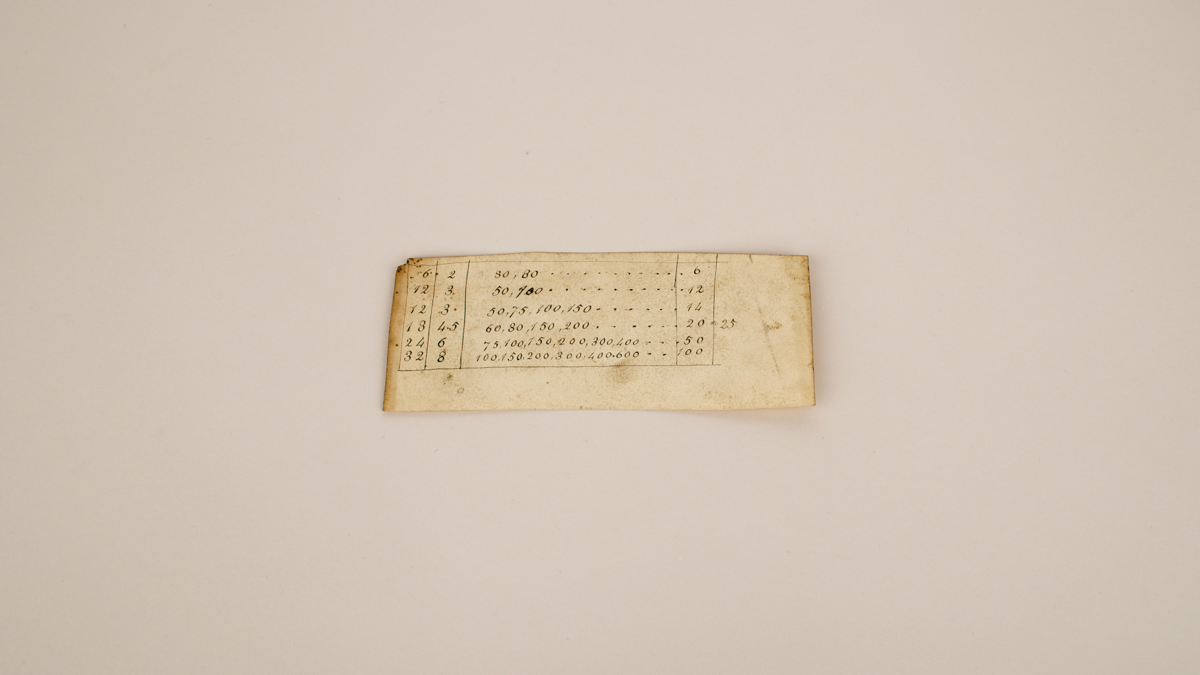 6 2 30,80 . . . . . . . . . . . 6
12 3 50, . . . . . . . . . . . 12
12 3 50,75,100,150 . . . . . . . 14
18 4.5 60,80,150,200 . . . . . . 20 = 25
24 6 75,100,150,200,300,400 . . . 50
32 8 100,150,200,300,400,600 . . 100